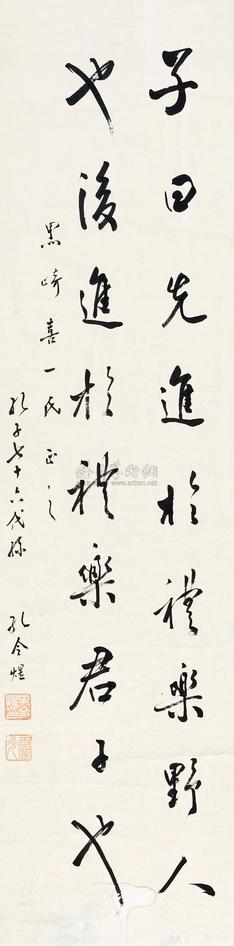 子曰先進於禮樂野人
也後進於禮樂君子也
黑崎喜一氏正之
孔子七十六代孫 孔令煜